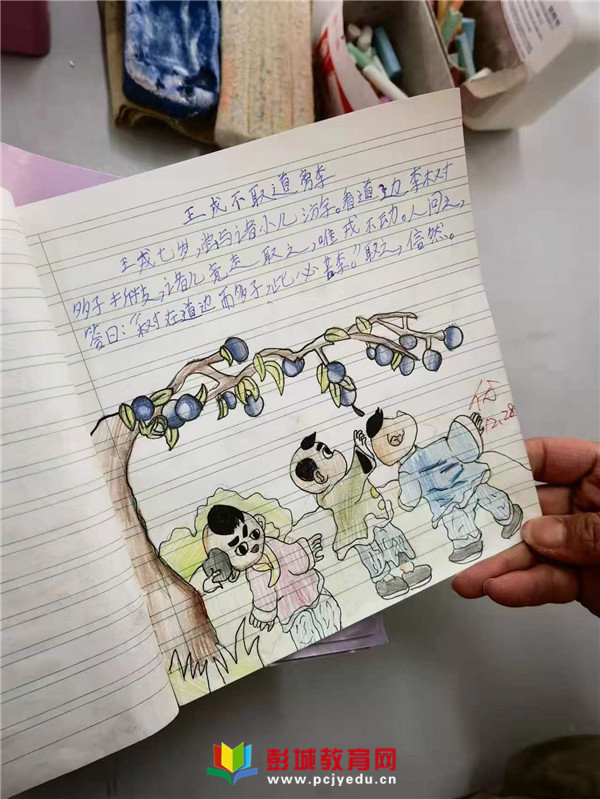 王戎不取道旁李
王戎七岁,尝与诸小儿游。看道边李树
多子折枝,诸儿竞走取之,唯戎不动。人问之,
答曰:“树在道边而多子,此必苦李。”取之,信然。
12.28
彭城教育网
www.pcjyedu.cn